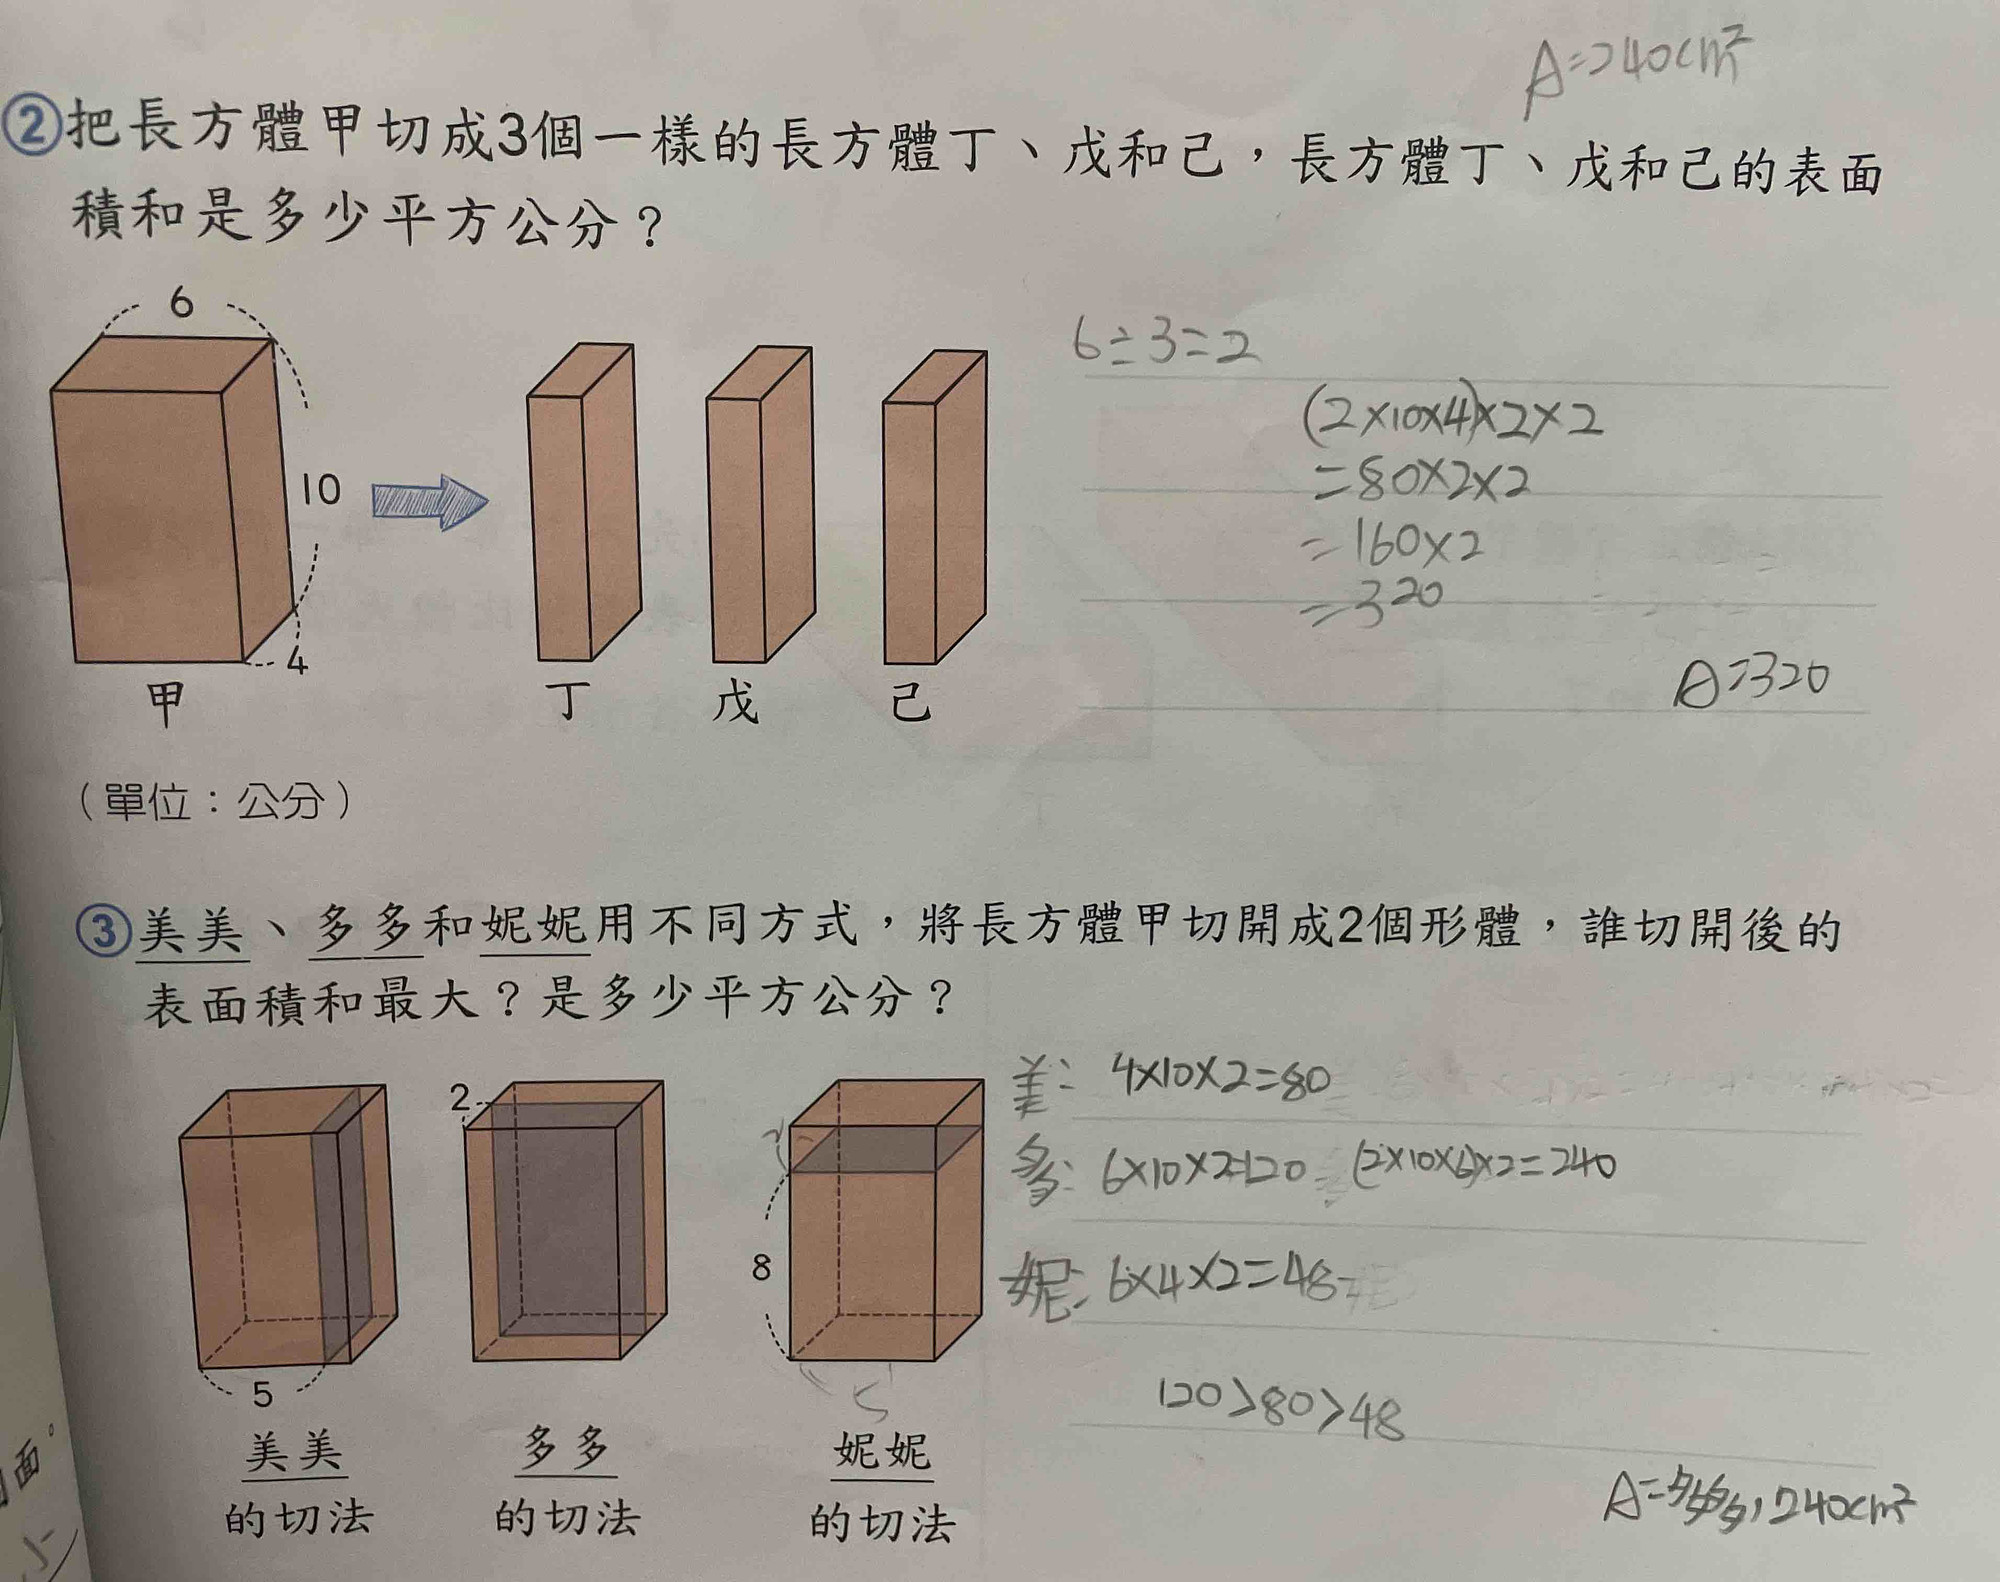 A=240cm²
②把長方體甲切成3個一樣的長方體丁、戊和己，長方體丁、戊和己的表面
積和是多少平方公分？
6
10
4
甲
丁
戊
己
6÷3=2
(2×10×4)×2×2
=80×2×2
=160×2
=320
A=320
（單位：公分）
③美美、多多和妮妮用不同方式，將長方體甲切開成2個形體，誰切開後的
表面積和最大？是多少平方公分？
5
美美
的切法
2
多多
的切法
8
5
妮妮
的切法
美： 4×10×2=80
多： 6×10×2=120 (2×10×6)×2=240
妮： 6×4×2=48
120>80>48
A=多多，240cm²
面。